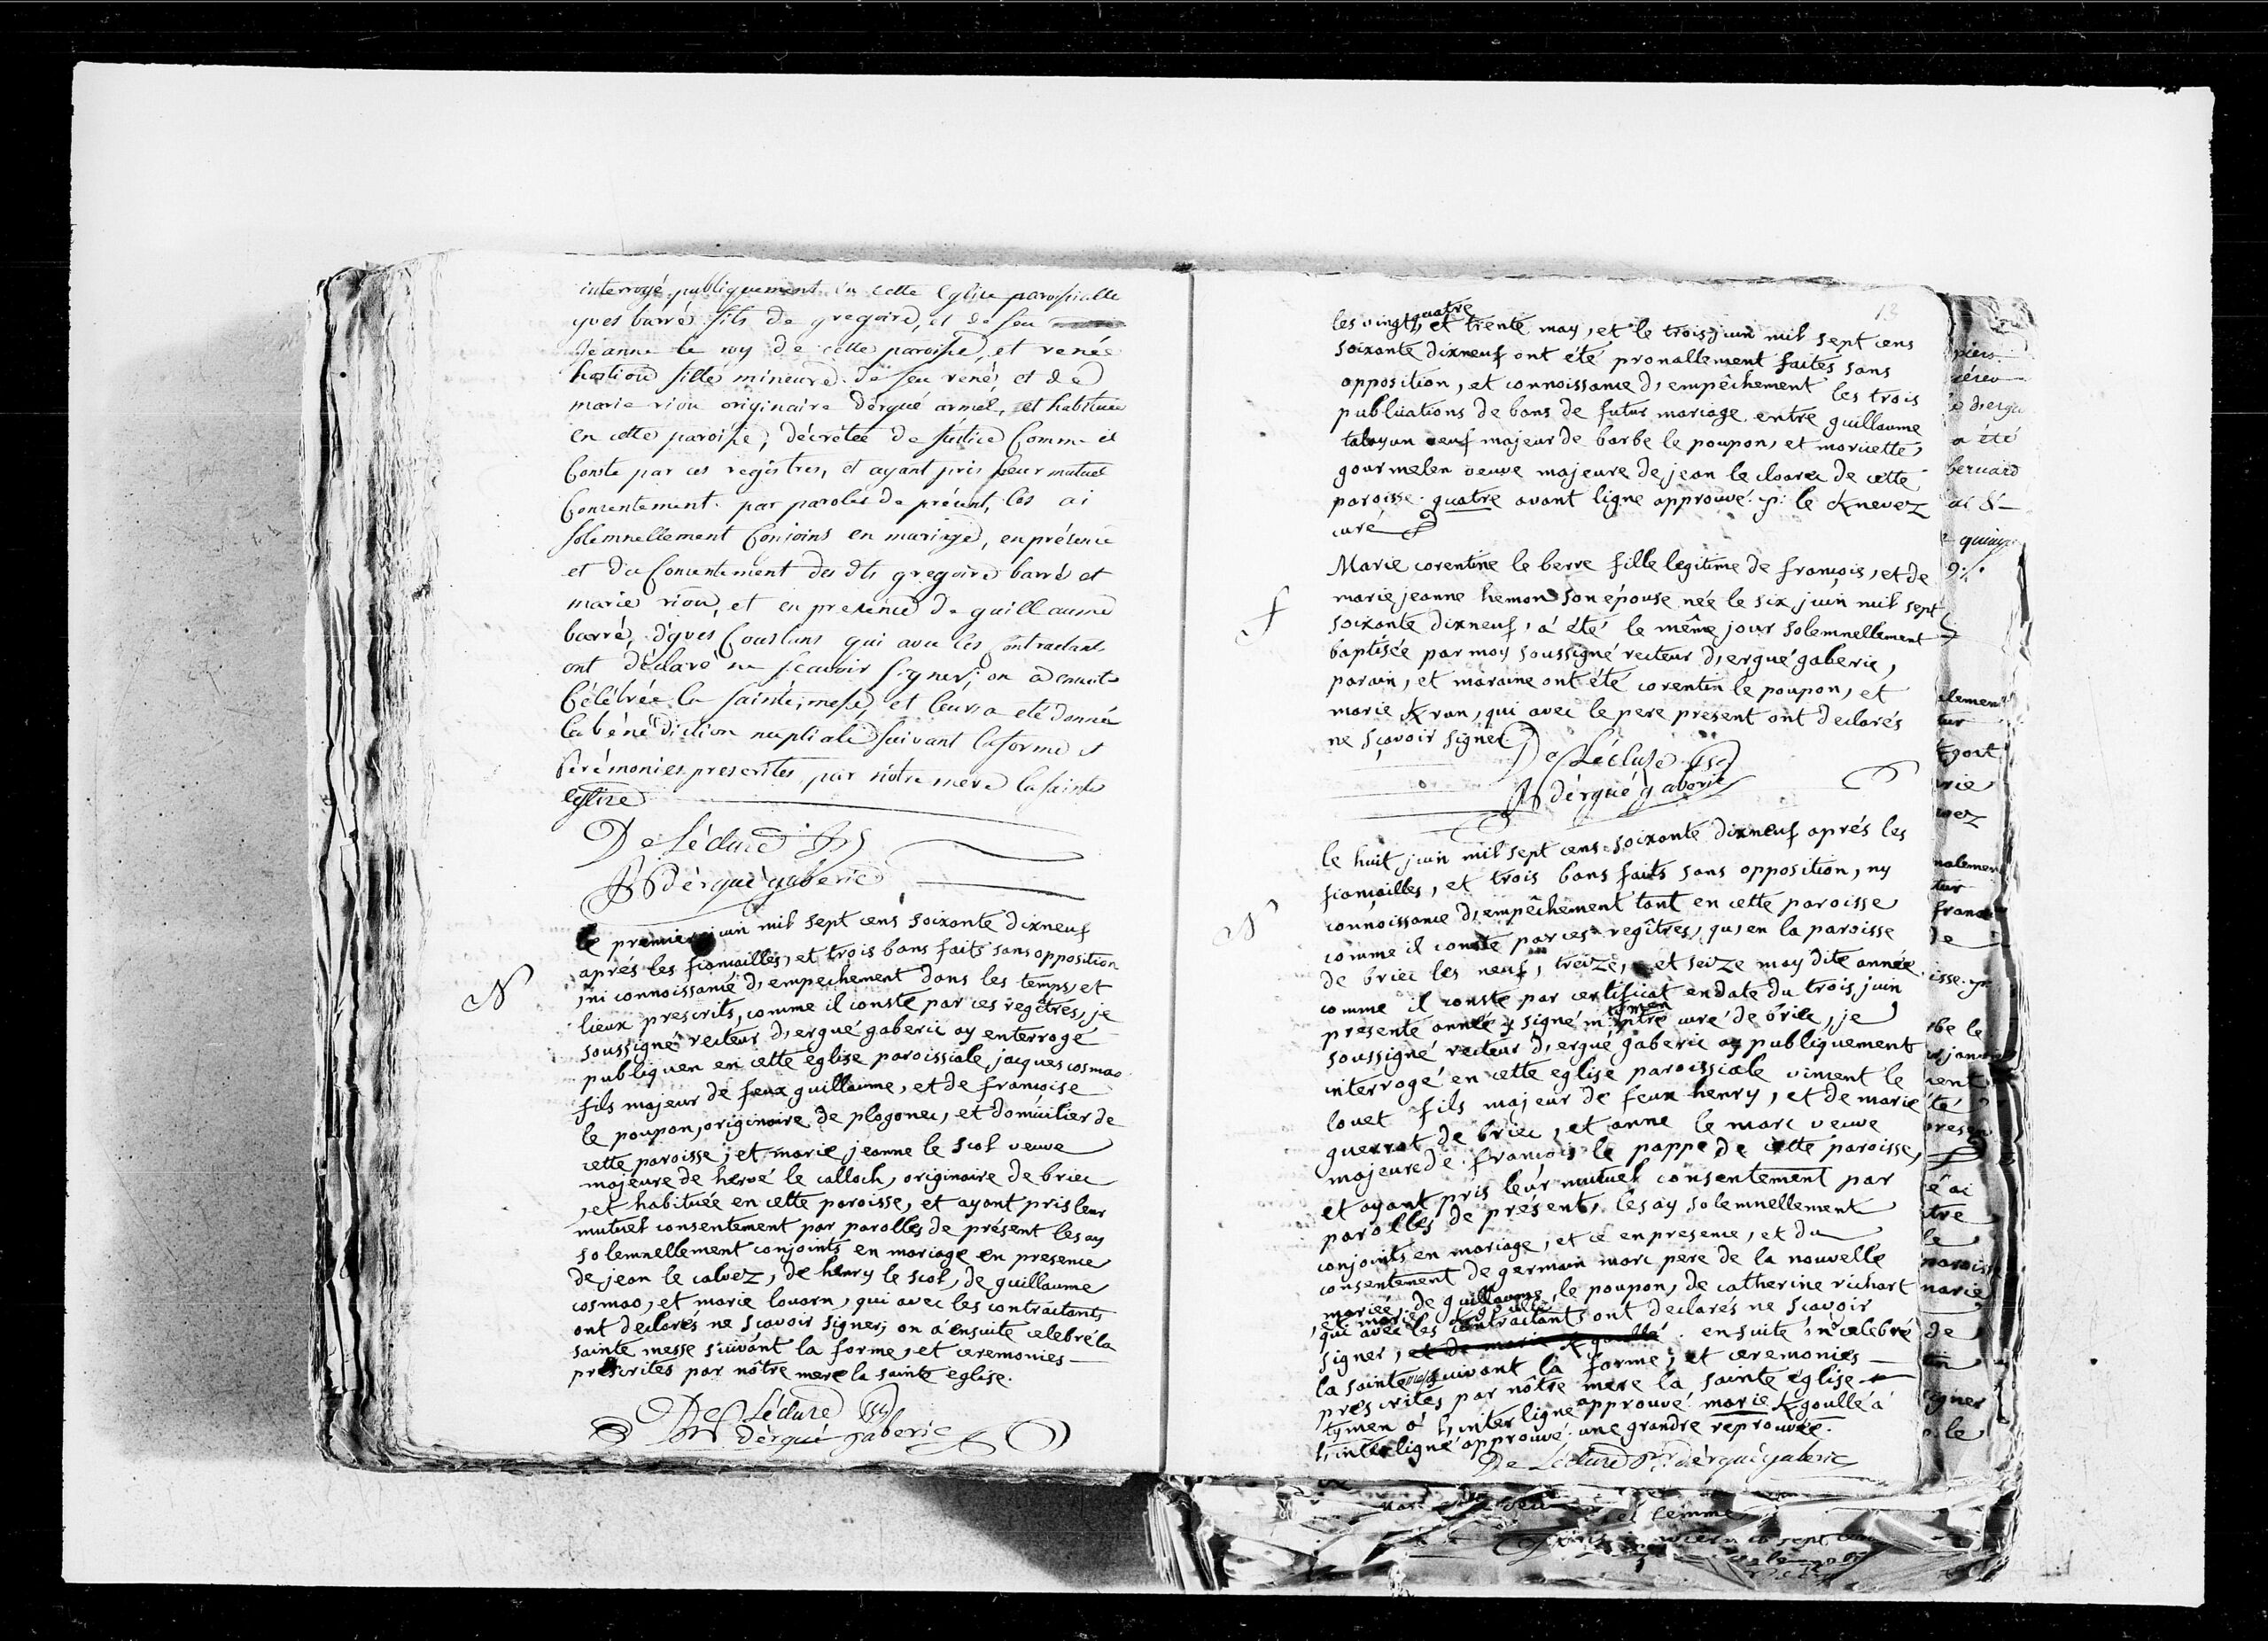 interrogé publiquement en cette Eglise paroissialle
yves barré fils de gregoire, et de feu
Jeanne le roy de cette paroisse, et renée
hostiou fille mineure de feu rené, et de
marie riou originaire d'ergué armel, et habituée
en cette paroisse, décrétée de Justice Comme il
Conste par ces registres, et ayant pris leur mutuel
Consentement par paroles de présent, les ai
solemnellement Conjoins en mariage, en présence
et du Consentement des dts gregoire barré et
marie riou, et en presence de guillaume
barré, d'yves Coustans qui avec les Contractants
ont déclaré ne scavoir signer; on a ensuite
Célébrée la sainte messe, et leurs a eté donnée
la bénédiction nuptiale suivant la forme et
Cérémonies prescrites par nôtre mere la sainte
eglise
De Lécluse
d'ergué gaberic
le premier juin mil sept cens soixante dixneuf
aprés les fiancailles, et trois bans faits sans opposition
, ni connoissance d'empechement dans les temps, et
lieux prescrits, comme il conste par ces regitres, je
soussigné recteur d'ergué gaberic ay enterrogé
publiquen en cette eglise paroissiale jacques cosmao
fils majeur de feux guillaume, et de francoise
le poupon, originaire de plogonec, et domicilier de
cette paroisse; et marie jeanne le scol veuve
majeure de hervé le calloch, originaire de briec
, et habituée en cette paroisse, et ayant pris leur
mutuel consentement par parolles de présent les ay
solemnellement conjoints en mariage en presence
de jean le calvez, de henry le scol, de guillaume
cosmao, et marie louarn, qui avec les contractants
ont declarés ne scavoir signer; on a ensuite celebré la
sainte messe suivant la forme, et ceremonies
prescrites par nôtre mere la sainte eglise.
De Lécluse
d'ergué gaberic
N
13
les vingt quatre, et trente may, et le trois juin mil sept cens
soixante dixneuf ont été pronallement faités sans
opposition, et connoissance d'empêchement les trois
publications de bans de futur mariage entre guillaume
veuf majeur de barbe le poupon, et moricette
gourmelen veuve majeure de jean le cloarec de cette
paroisse. quatre avant ligne approuvé. le Knevez
curé
f
Marie corentine le berre fille legitime de francois, et de
marie jeanne hemon son épouse née le six juin mil sept
soixante dixneuf, a été le même jour solemnellement
baptisée par moy soussigné recteur d'ergué gaberic,
parain, et maraine ont été corentin le poupon, et
marie Kvran, qui avec le pere present ont declarés
ne scavoir signer
De Lécluse
d'ergué gaberic
N
le huit juin mil sept cens soixante dixneuf aprés les
fiancailles, et trois bans faits sans opposition, ny
connoissance d'empêchement tant en cette paroisse
comme il conste par ces regîtres, qu'en la paroisse
de briec les neuf, treize, et seize may dite année
comme il conste par certificat en date du trois juin
presente année signé m. tymen ptre curé de briec, je
soussigné recteur d'ergué gaberic ay publiquement
interrogé en cette eglise paroissiale vincent le
louet fils majeur de feux henry, et de marie
guerrot de briec, et anne le marc veuve
majeure de francois le pappe de cette paroisse,
et ayant pris leur mutuel consentement par
parolles de présent, les ay solemnellement
conjoints en mariage, et ce en presence, et du
consentement de germain marc pere de la nouvelle
mariée, de guillaume le poupon, de catherine richart
, et marie Kgoullé
qui avec les contractants ont declarés ne scavoir
signer, et de marie Kgoullé. ensuite celebré
la sainte messe suivant la forme, et ceremonies
prescrites par nôtre mere la sainte église
tymen à l'interligne approuvé marie Kgoullé à
l'interligne approuvé. une grandre reprouvée.
De Lécluse d'ergué gaberic